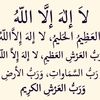 لَا إِلٰهَ إِلَّا اللّٰهُ
الْعَظِيمُ الْحَلِيمُ، لَا إِلٰهَ إِلَّا اللّٰهُ
رَبُّ الْعَرْشِ الْعَظِيمِ، لَا إِلٰهَ إِلَّا اللّٰهُ
رَبُّ السَّمَاوَاتِ، وَرَبُّ الْأَرْضِ
وَرَبُّ الْعَرْشِ الْكَرِيمِ